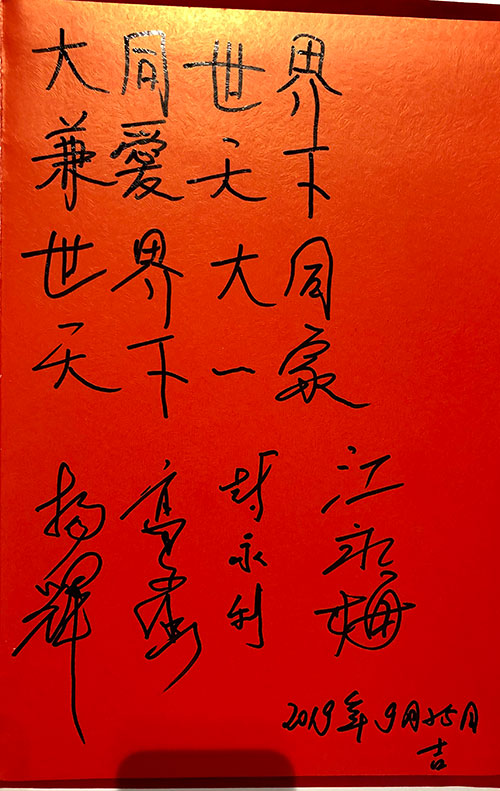 大同世界
兼愛天下
世界大同
天下一家
楊輝
高
封永利
江永梅
2019年9月25日
吉